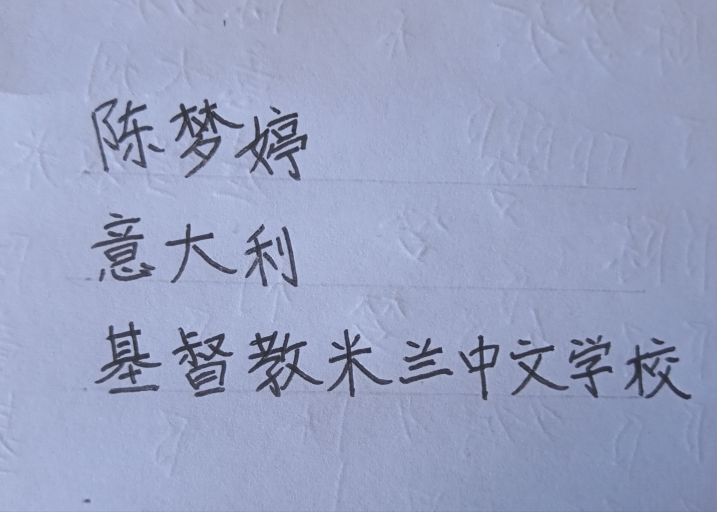 陈梦婷
意大利
基督教米兰中文学校